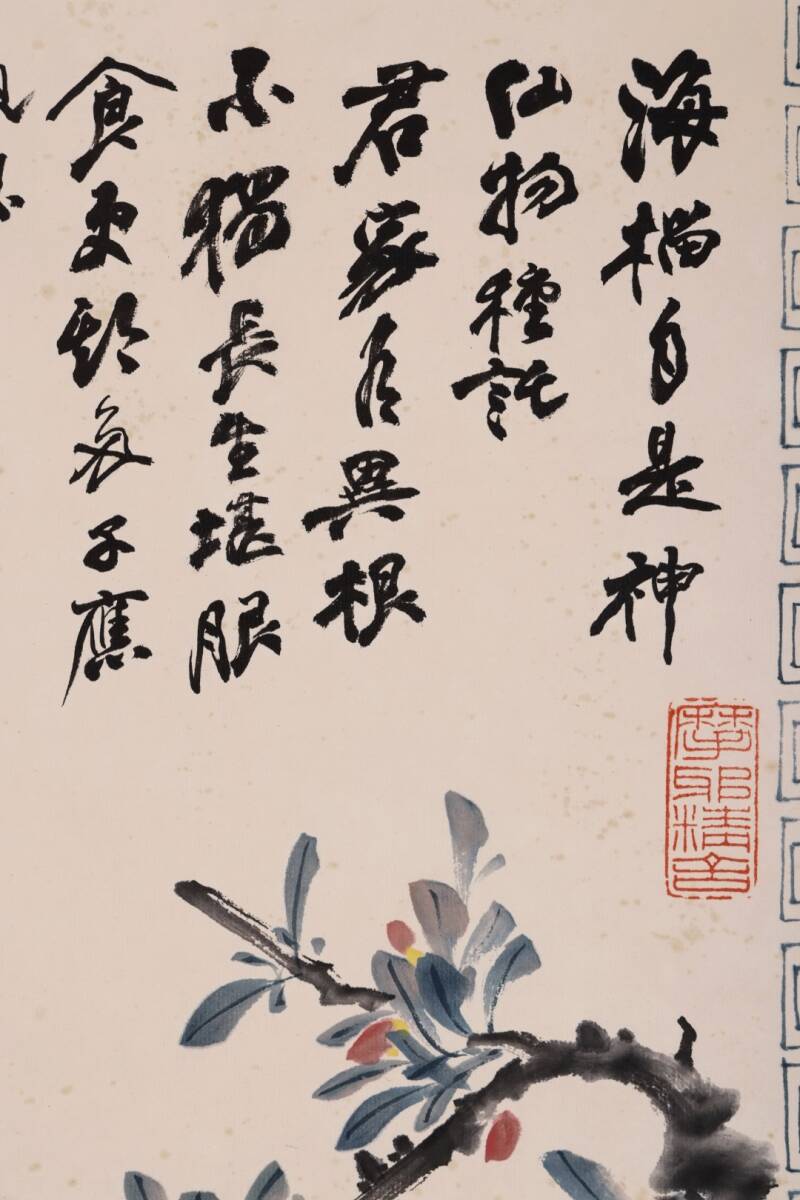 海榴自是神
仙物種託
君家有異根
不獨長生堪服
食更期多子應